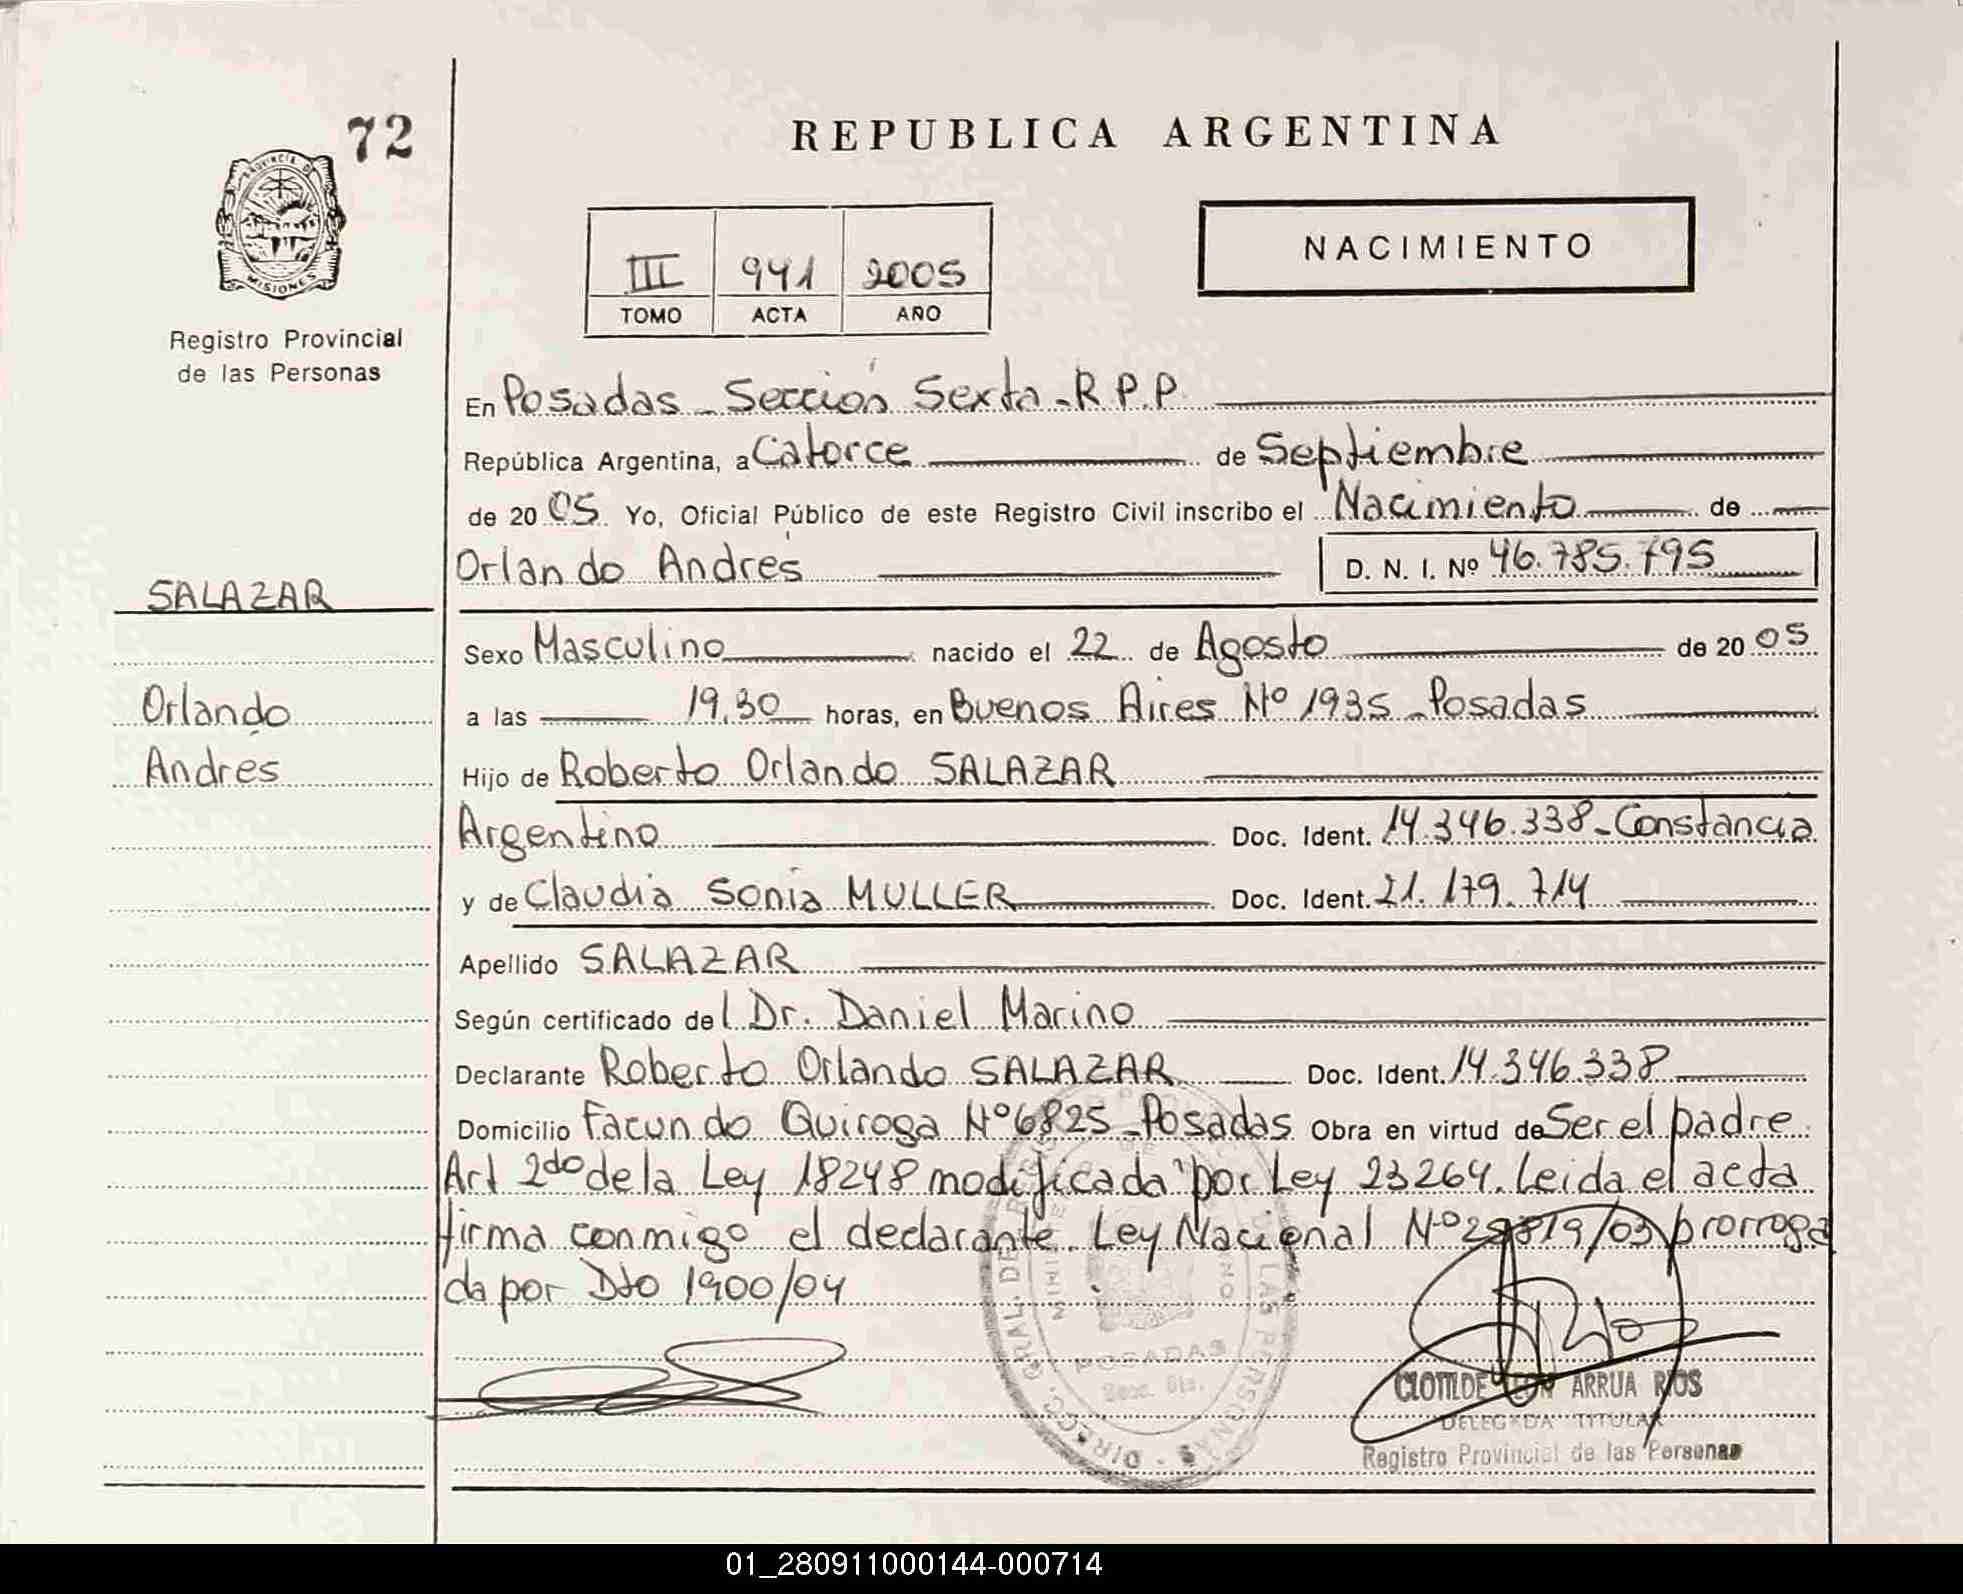 72
PROVINCIA DE
MISIONES
Registro Provincial
de las Personas
SALAZAR
Orlando
Andrés
REPUBLICA ARGENTINA
III 941 2005
TOMO ACTA AÑO
NACIMIENTO
En Posadas - Sección Sexta - R.P.P.
República Argentina, a Catorce de Septiembre
de 2005. Yo, Oficial Público de este Registro Civil inscribo el Nacimiento de
Orlando Andrés D. N. I. Nº 46.785.795
Sexo Masculino nacido el 22 de Agosto de 2005
a las 19.30 horas, en Buenos Aires Nº 1935 - Posadas
Hijo de Roberto Orlando SALAZAR
Argentino Doc. Ident. 14.346.338 - Constancia
y de Claudia Sonia MULLER Doc. Ident. 21.179.714
Apellido SALAZAR
Según certificado del Dr. Daniel Marino
Declarante Roberto Orlando SALAZAR Doc. Ident. 14.346.338
Domicilio Facundo Quiroga Nº 6825 - Posadas Obra en virtud de Ser el padre
Art 2do de la Ley 18248 modificada por Ley 23264. Leida el acta
firma conmigo el declarante. Ley Nacional Nº 25819/03 prorroga
da por Dto 1900/04
POSADAS
Secc. 6ta.
CLOTILDE LEON ARRUA RIOS
DELEGADA TITULAR
Registro Provincial de las Personas
01_280911000144-000714